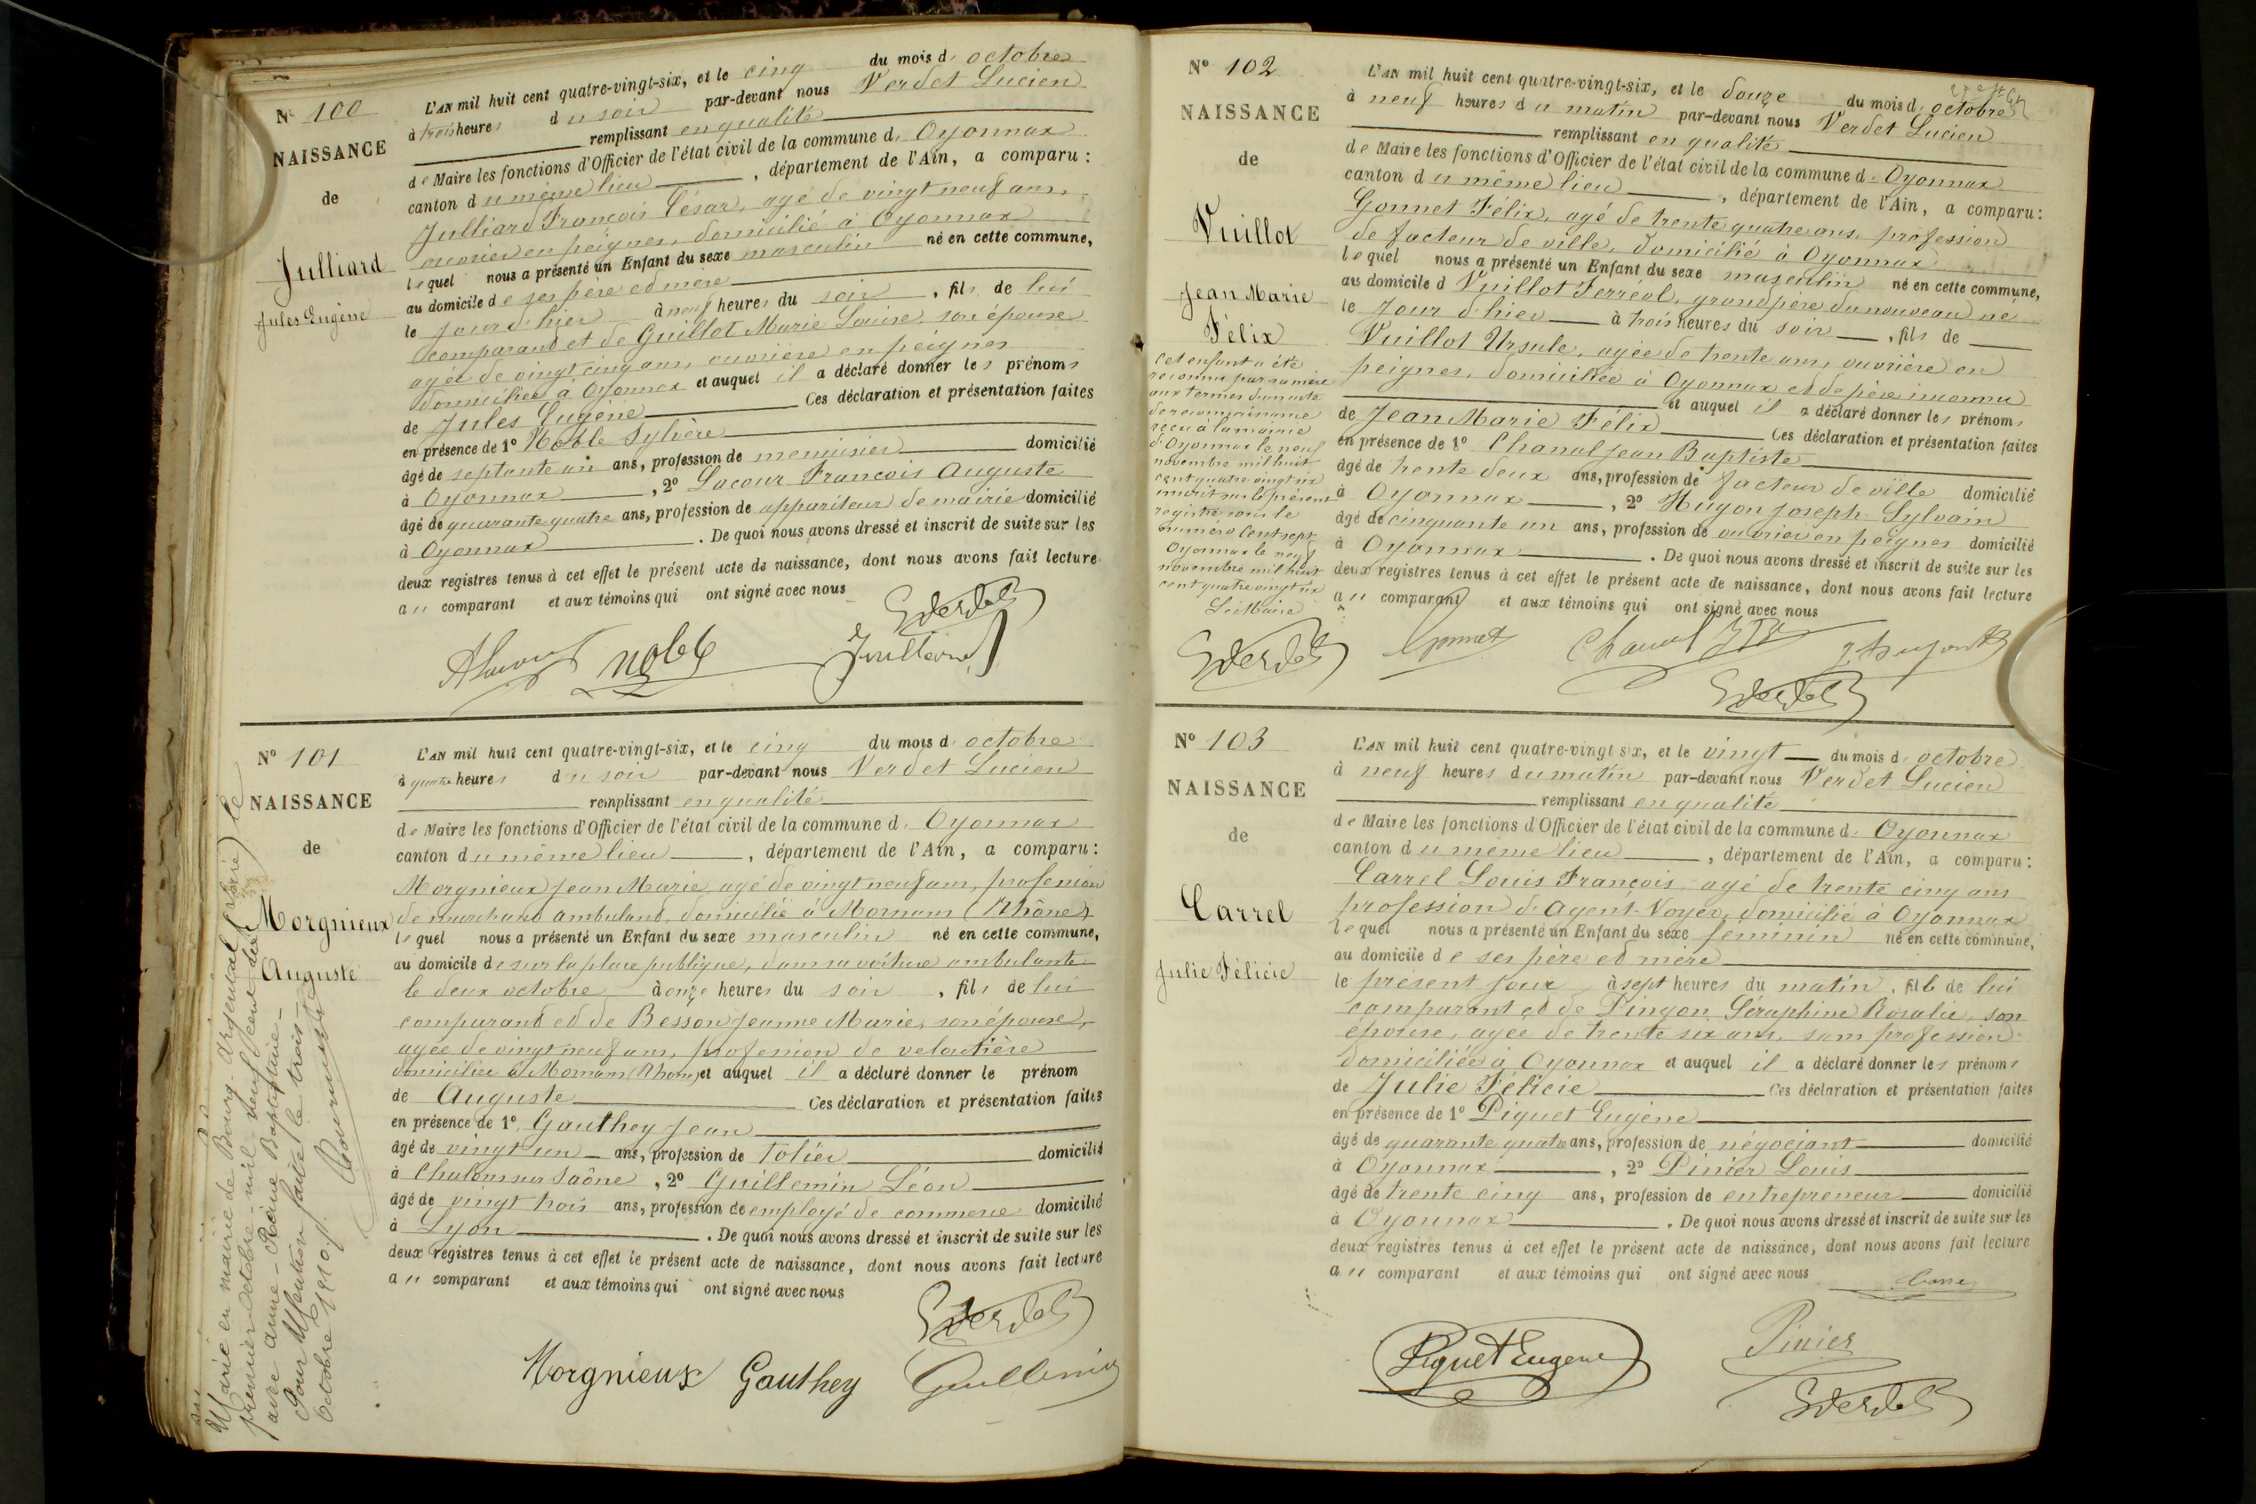 N° 100
NAISSANCE
de
Julliard
Jules Eugène
L'AN mil huit cent quatre-vingt-six, et le cinq du mois d'octobre
à trois heures du soir par-devant nous Verdet Lucien
remplissant en qualité
de Maire les fonctions d'Officier de l'état civil de la commune d'Oyonnax
canton du même lieu, département de l'Ain, a comparu :
Julliard François César, agé de vingt neuf ans,
ouvrier en peignes, domicilié à Oyonnax
lequel nous a présenté un Enfant du sexe masculin né en cette commune,
au domicile de ses père et mère
le jour d'hier à neuf heures du soir, fils de lui
comparant et de Guillot Marie Louise, son épouse
agée de vingt cinq ans, ouvrière en peignes
domiciliée à Oyonnax et auquel il a déclaré donner les prénoms
de Jules Eugène Ces déclaration et présentation faites
en présence de 1° Noble Sylvère
âgé de septante un ans, profession de menuisier domicilié
à Oyonnax, 2° Lacour François Auguste
âgé de quarante quatre ans, profession de appariteur de mairie domicilié
à Oyonnax. De quoi nous avons dressé et inscrit de suite sur les
deux registres tenus à cet effet le présent acte de naissance, dont nous avons fait lecture
au comparant et aux témoins qui ont signé avec nous
LVerdet
Noble Julliard
N° 101
NAISSANCE
de
Morgnieux
Auguste
Marié en mairie de Bourg-Argental (Loire) le
premier octobre mil neuf cent dix
avec Reine Baptistine
Pour Mention faite le trois
octobre 1910.
L'AN mil huit cent quatre-vingt-six, et le cinq du mois d'octobre
à quatre heures du soir par-devant nous Verdet Lucien
remplissant en qualité
de Maire les fonctions d'Officier de l'état civil de la commune d'Oyonnax
canton du même lieu, département de l'Ain, a comparu :
Morgnieux Jean Marie, agé de vingt neuf ans, profession
de marchand ambulant, domicilié à Mornans (Rhône)
lequel nous a présenté un Enfant du sexe masculin né en cette commune,
au domicile de sur la place publique, dans sa voiture ambulante
le deux octobre à onze heures du soir, fils de lui
comparant et de Besson Jeanne Marie, son épouse,
agée de vingt neuf ans, profession de veloutière
domiciliée à Mornans (Rhône) et auquel il a déclaré donner le prénom
de Auguste Ces déclaration et présentation faites
en présence de 1° Gauthey Jean
âgé de vingt un ans, profession de tolier domicilié
à Chalon sur Saône, 2° Guillemin Léon
âgé de vingt trois ans, profession de employé de commerce domicilié
à Lyon. De quoi nous avons dressé et inscrit de suite sur les
deux registres tenus à cet effet le présent acte de naissance, dont nous avons fait lecture
au comparant et aux témoins qui ont signé avec nous
LVerdet
Morgnieux Gauthey Guillemin
N° 102
NAISSANCE
de
Vuillot
Jean Marie
Félix
Cet enfant a été
reconnu par sa mère
aux termes d'un acte
de reconnaissance
reçu à la mairie
d'Oyonnax le neuf
novembre mil huit
cent quatre vingt six
inscrit sur le présent
registre sous le
numéro Cent sept
Oyonnax le neuf
novembre mil huit
cent quatre vingt six
Le Maire
LVerdet
L'AN mil huit cent quatre-vingt-six, et le douze du mois d'octobre
à neuf heures du matin par-devant nous Verdet Lucien
remplissant en qualité
de Maire les fonctions d'Officier de l'état civil de la commune d'Oyonnax
canton du même lieu, département de l'Ain, a comparu :
Gonnet Félix, agé de trente quatre ans, profession
de facteur de ville, domicilié à Oyonnax
lequel nous a présenté un Enfant du sexe masculin né en cette commune,
au domicile d Vuillot Ferréol, grand père du nouveau né
le jour d'hier à trois heures du soir, fils de
Vuillot Ursule, agée de trente ans, ouvrière en
peignes, domiciliée à Oyonnax et de père inconnu
et auquel il a déclaré donner les prénoms
de Jean Marie Félix Ces déclaration et présentation faites
en présence de 1° Chanal Jean Baptiste
âgé de trente deux ans, profession de facteur de ville domicilié
à Oyonnax, 2° Hugon Joseph Sylvain
âgé de cinquante un ans, profession de ouvrier en peignes domicilié
à Oyonnax. De quoi nous avons dressé et inscrit de suite sur les
deux registres tenus à cet effet le présent acte de naissance, dont nous avons fait lecture
au comparant et aux témoins qui ont signé avec nous
Gonnet Chanal JB
LVerdet
N° 103
NAISSANCE
de
Carrel
Julie Félicie
L'AN mil huit cent quatre-vingt six, et le vingt du mois d'octobre
à neuf heures du matin par-devant nous Verdet Lucien
remplissant en qualité
de Maire les fonctions d'Officier de l'état civil de la commune d'Oyonnax
canton du même lieu, département de l'Ain, a comparu :
Carrel Louis François agé de trente cinq ans
profession d'Agent-Voyer, domicilié à Oyonnax
lequel nous a présenté un Enfant du sexe féminin né en cette commune,
au domicile de ses père et mère
le présent jour à sept heures du matin, fille de lui
comparant et de Pingon Séraphine Rosalie, son
épouse, agée de trente six ans, sans profession
domiciliée à Oyonnax et auquel il a déclaré donner les prénoms
de Julie Félicie Ces déclaration et présentation faites
en présence de 1° Piquet Eugène
âgé de quarante quatre ans, profession de négociant domicilié
à Oyonnax, 2° Pinier Louis
âgé de trente cinq ans, profession de entrepreneur domicilié
à Oyonnax. De quoi nous avons dressé et inscrit de suite sur les
deux registres tenus à cet effet le présent acte de naissance, dont nous avons fait lecture
au comparant et aux témoins qui ont signé avec nous
Piquet Eugène Pinier
LVerdet